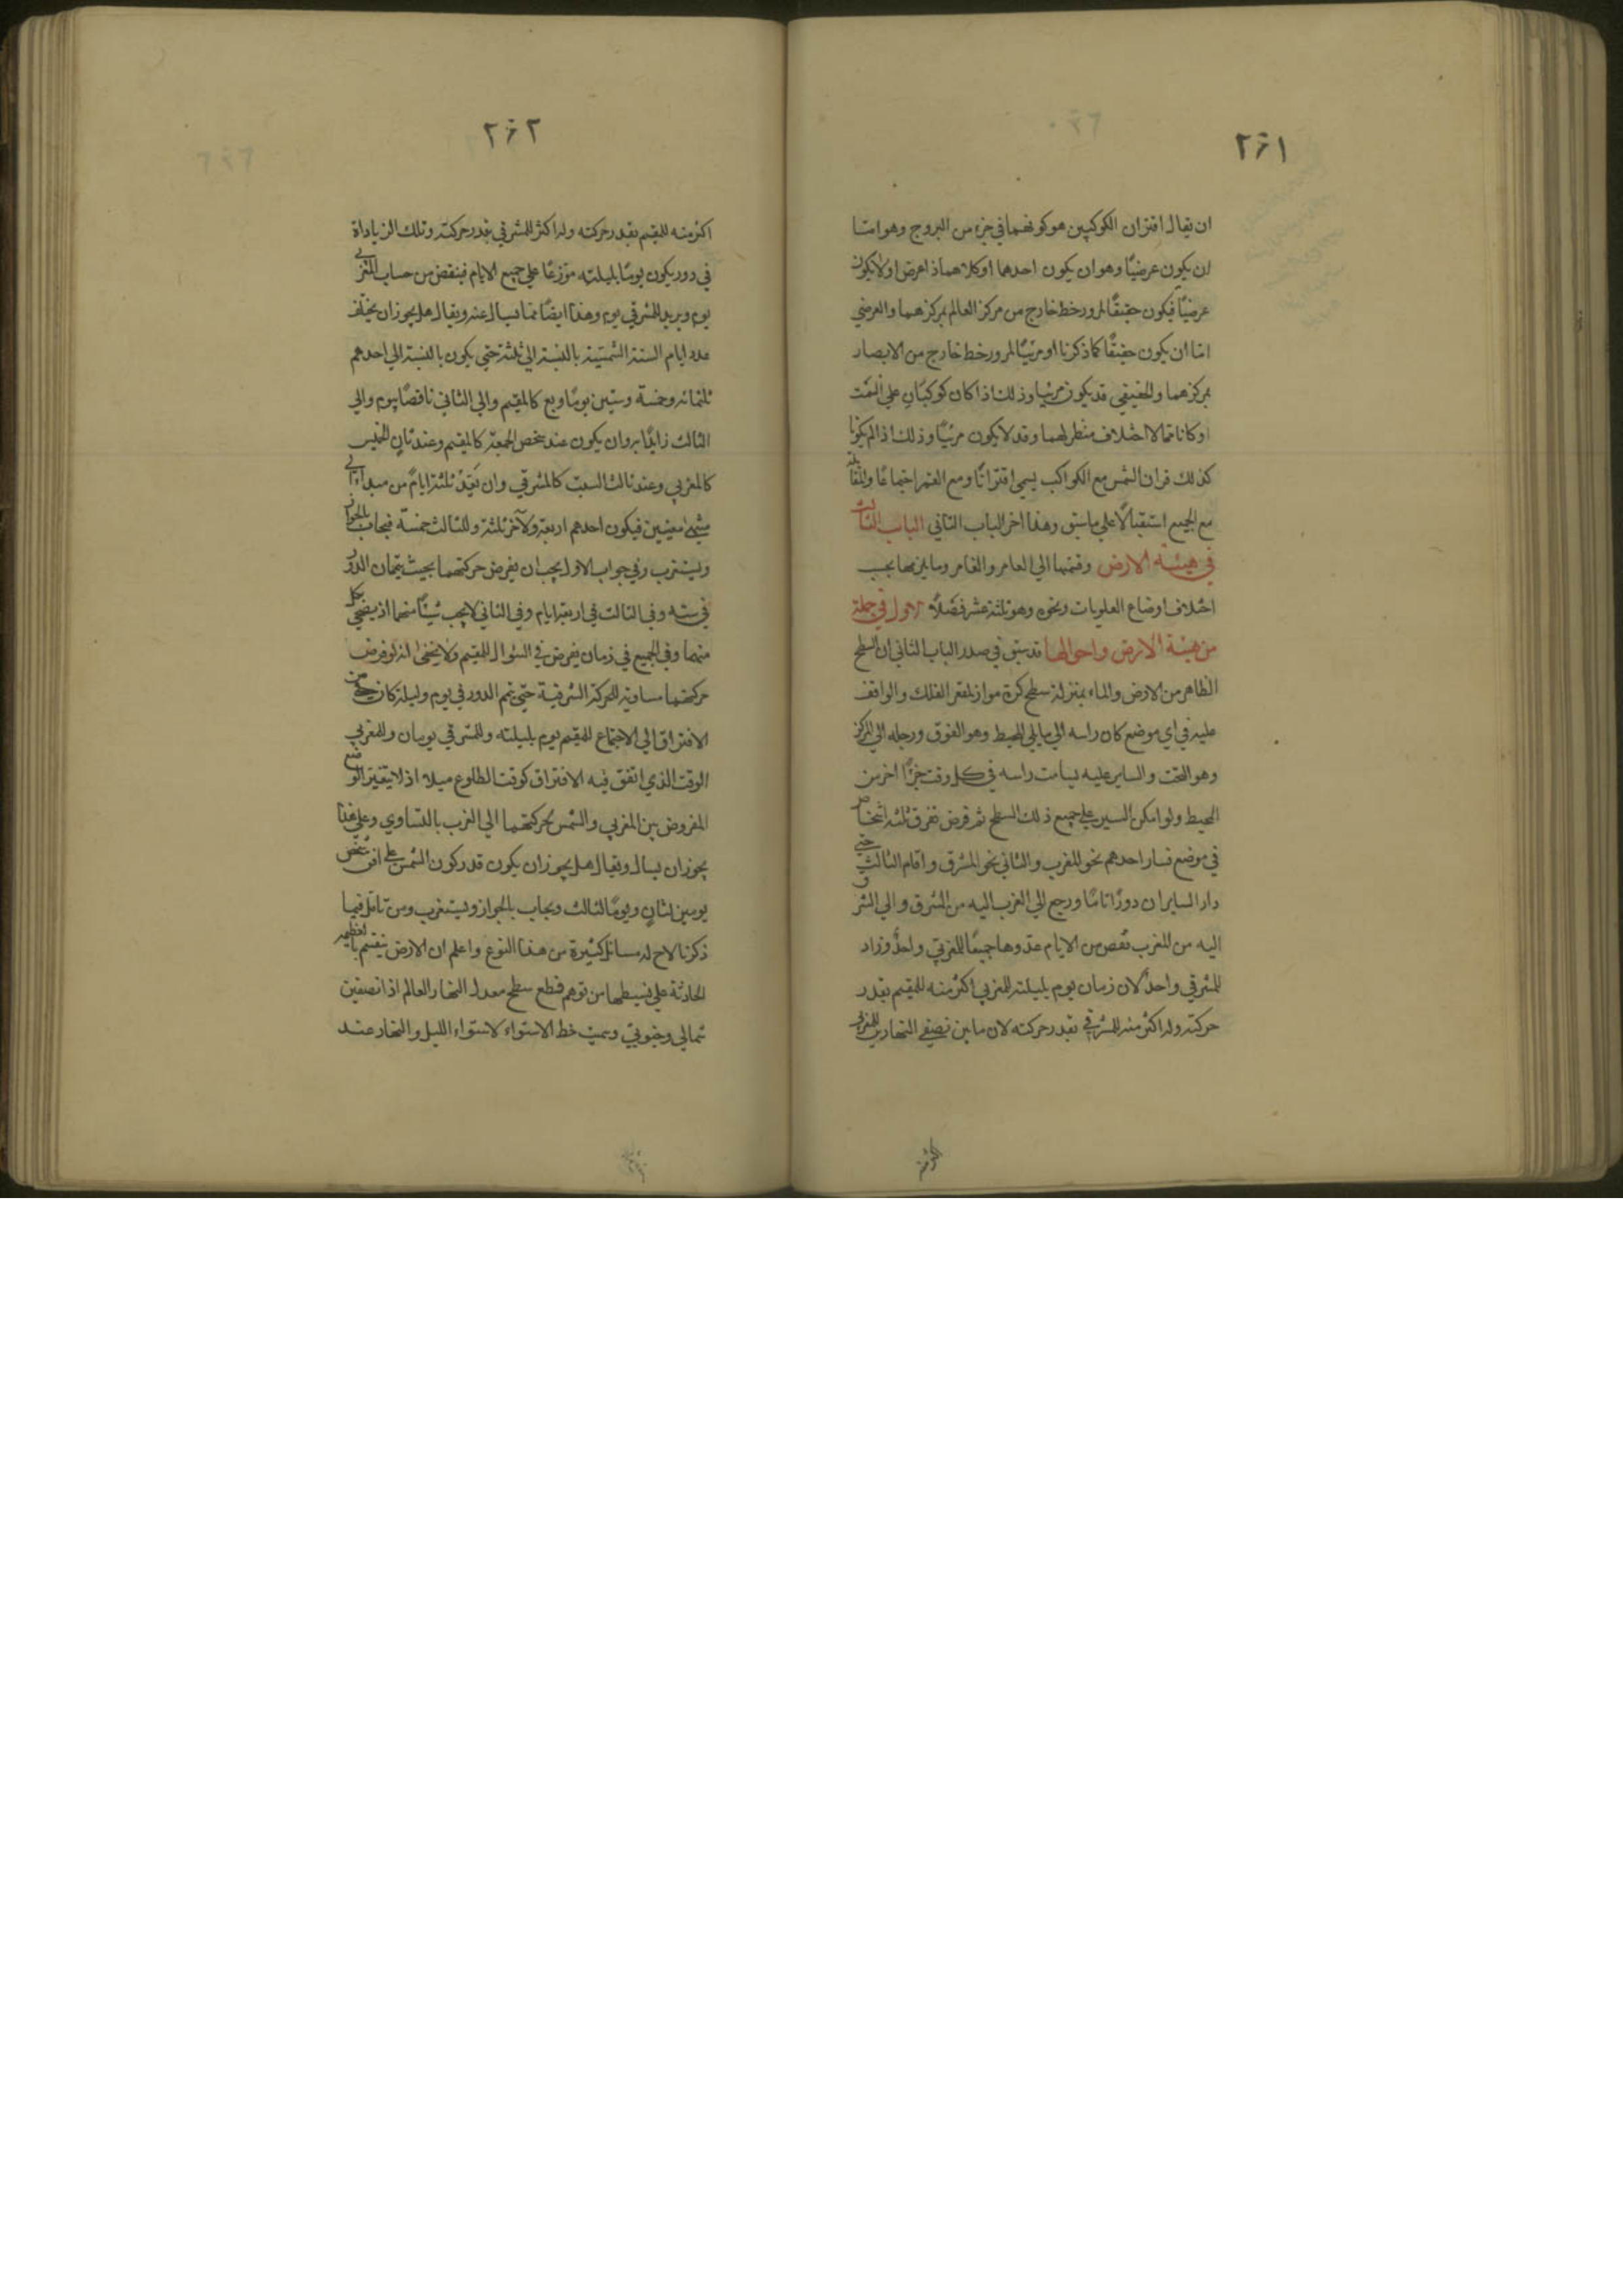 ٢٦١
ان يقال اقتران الكوكبين هو كونهما في جزء من البروج وهو اما
ان يكون عرضيًا وهو ان يكون احدهما او كلاهما ذا عرض اولا يكون
عرضيًا فيكون حقيقًا لمرور خط خارج من مركز العالم بمركزهما والعرضي
اما ان يكون حقيقًا كما ذكرنا او مرئيًا لمرور خط خارج من الابصار
بمركزهما والحقيقي قد يكون مرئيا وذلك اذا كان كوكبان علي السمت
او كانا مما لا اختلاف منظر لهما وقد لا يكون مرئيًا وذلك اذا لم يكونا
كذلك قران الشمس مع الكواكب يسمي اقترانًا ومع القمر اجتماعًا والمقابلة
مع الجميع استقبالًا علي ما سبق وهذا اخر الباب الثاني الباب الثالث
في هيئة الارض وقسمتها الي العامر والغامر وما يلزمها بحسب
اختلاف اوضاع العلويات ونحوه وهو ثلثة عشر فصلًا الاول في جملة
من هيئة الارض واحوالها قد سبق في صدر الباب الثاني ان السطح
الظاهر من الارض والماء بمنزلة سطح كرة مواز لمقعر الفلك والواقف
عليه في اي موضع كان راسه الي ما يلي المحيط وهو الفوق ورجله الي المركز
وهو التحت والساير عليه يسامت راسه في كل وقت جزًا اخر من
المحيط ولو امكن السير علي جميع ذلك السطح ثم فرض تفرق ثلثة اشخاص
في موضع فسار احدهم نحو المغرب والثاني نحو المشرق واقام الثالث حتي
دار السايران دورًا تامًا ورجع الي الغرب اليه من الشرق والي الشرق
اليه من المغرب نقص من الايام عدوها جميعًا للمغربي واحدٌ وزاد
للمشرقي واحدٌ لان زمان يوم بليلته للمغربي اكثر منه للمقيم بقدر
حركته وله اكثر منه للمشرقي بقدر حركته لان ما بين نصفي النهارين للمغربي
اكثر منه
٢٦٢
اكثر منه للمقيم بقدر حركته وله اكثر للمشرقي بقدر حركته وتلك الزياداة
في دور يكون يومًا بليلته موزعًا علي جميع الايام فينقص من حساب المغربي
يوم ويزيد للمشرقي يوم وهذا ايضًا مما يسال عنه ويقال هل يجوز ان يختلف
عدد ايام السنة الشمسية بالنسبة الي ثلثة حتي يكون بالنسبة الي احدهم
ثلثمائة وخمسة وستين يومًا وربع كالمقيم والي الثاني ناقصًا بيوم والي
الثالث زايدًا به وان يكون عند شخص الجمعة كالمقيم وعند ثانٍ الخميس
كالمغربي وعند ثالث السبت كالمشرقي وان ثلثة ايام من مبدا
معينين فيكون احدهم اربعة ولآخر ثلثة وللثالث خمسة فيجاب بالجواز
ويستغرب وفي جواب الاول يجب ان يفرض حركتهما بحيث يتمان الدور
في سنة وفي الثالث في اربعة ايام وفي الثاني لا يجب شيئًا منهما اذ يضحي بكل
منهما وفي الجميع في زمان يفرض في السؤال للمقيم ولا يخفي انه لو فرض
حركتهما مساوية للحركة الشرقية حتي يتم الدور في يوم وليلة كان من
الافتراق الي الاجتماع للمقيم يوم بليلته وللمشرقي يومان وللمغربي
الوقت الذي اتفق فيه الافتراق كوقت الطلوع مثلا اذ لا يتغير الوضع
المفروض بين المغربي والشمس لحركتهما الي الغرب بالتساوي وعلي هذا
يجوز ان يسال ويقال هل يجوز ان يكون قدر كون الشمس علي افق شخص
يومين لثانٍ ويومًا لثالث ويجاب بالجواز ويستغرب ومن تامل فيما
ذكرنا لاح له مسائل كثيرة من هذا النوع واعلم ان الارض ينقسم بالعظيمة
الحادثة علي بسيطها من توهم قطع سطح معدل النهار العالم اذا نصفين
شمالي وجنوبي وسميت خط الاستواء لاستواء الليل والنهار عند